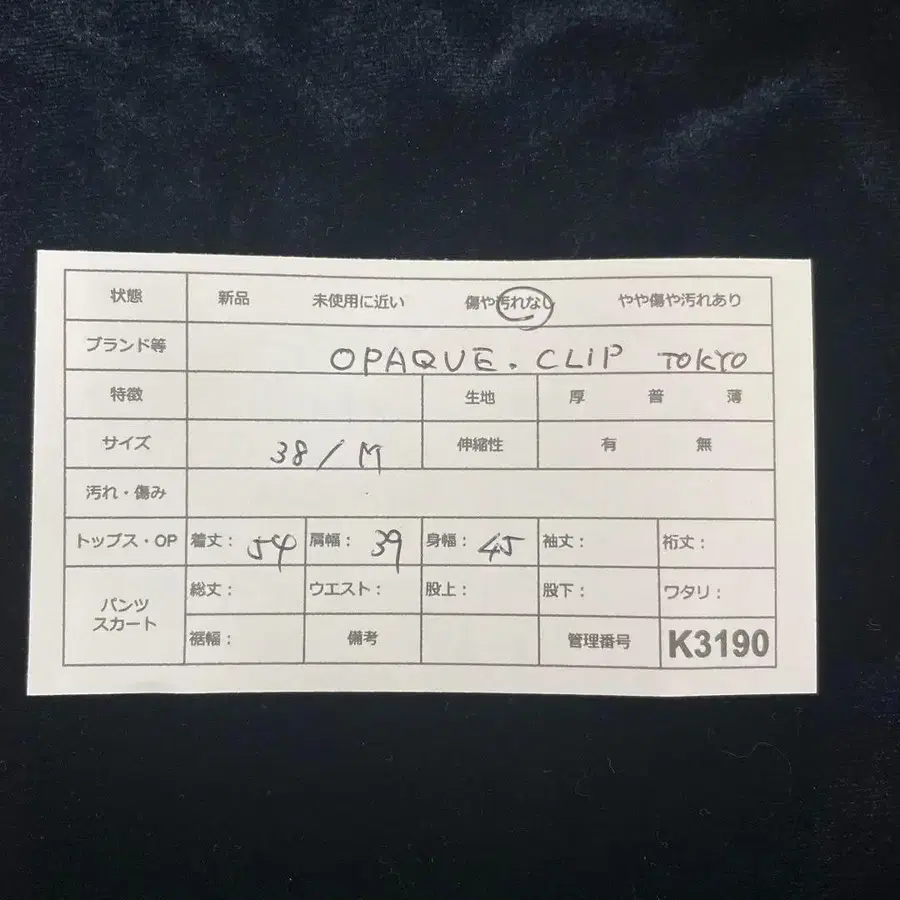 状態 新品 未使用に近い 傷や汚れなし やや傷や汚れあり
ブランド等 OPAQUE.CLIP TOKYO
特徴 生地 厚 普 薄
サイズ 38/M 伸縮性 有 無
汚れ・傷み
トップス・OP 着丈: 54 肩幅: 39 身幅: 45 袖丈: 裄丈:
パンツ スカート 総丈: ウエスト: 股上: 股下: ワタリ:
裾幅: 備考 管理番号 K3190